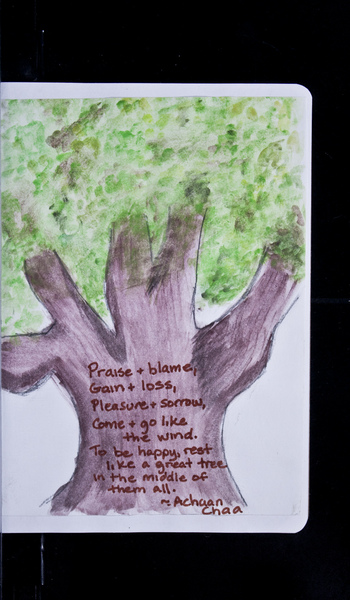 Praise + blame,
Gain + loss,
Pleasure + sorrow,
Come + go like
the wind.
To be happy, rest
like a great tree
in the middle of
them all.
~ Achaan
Chaa